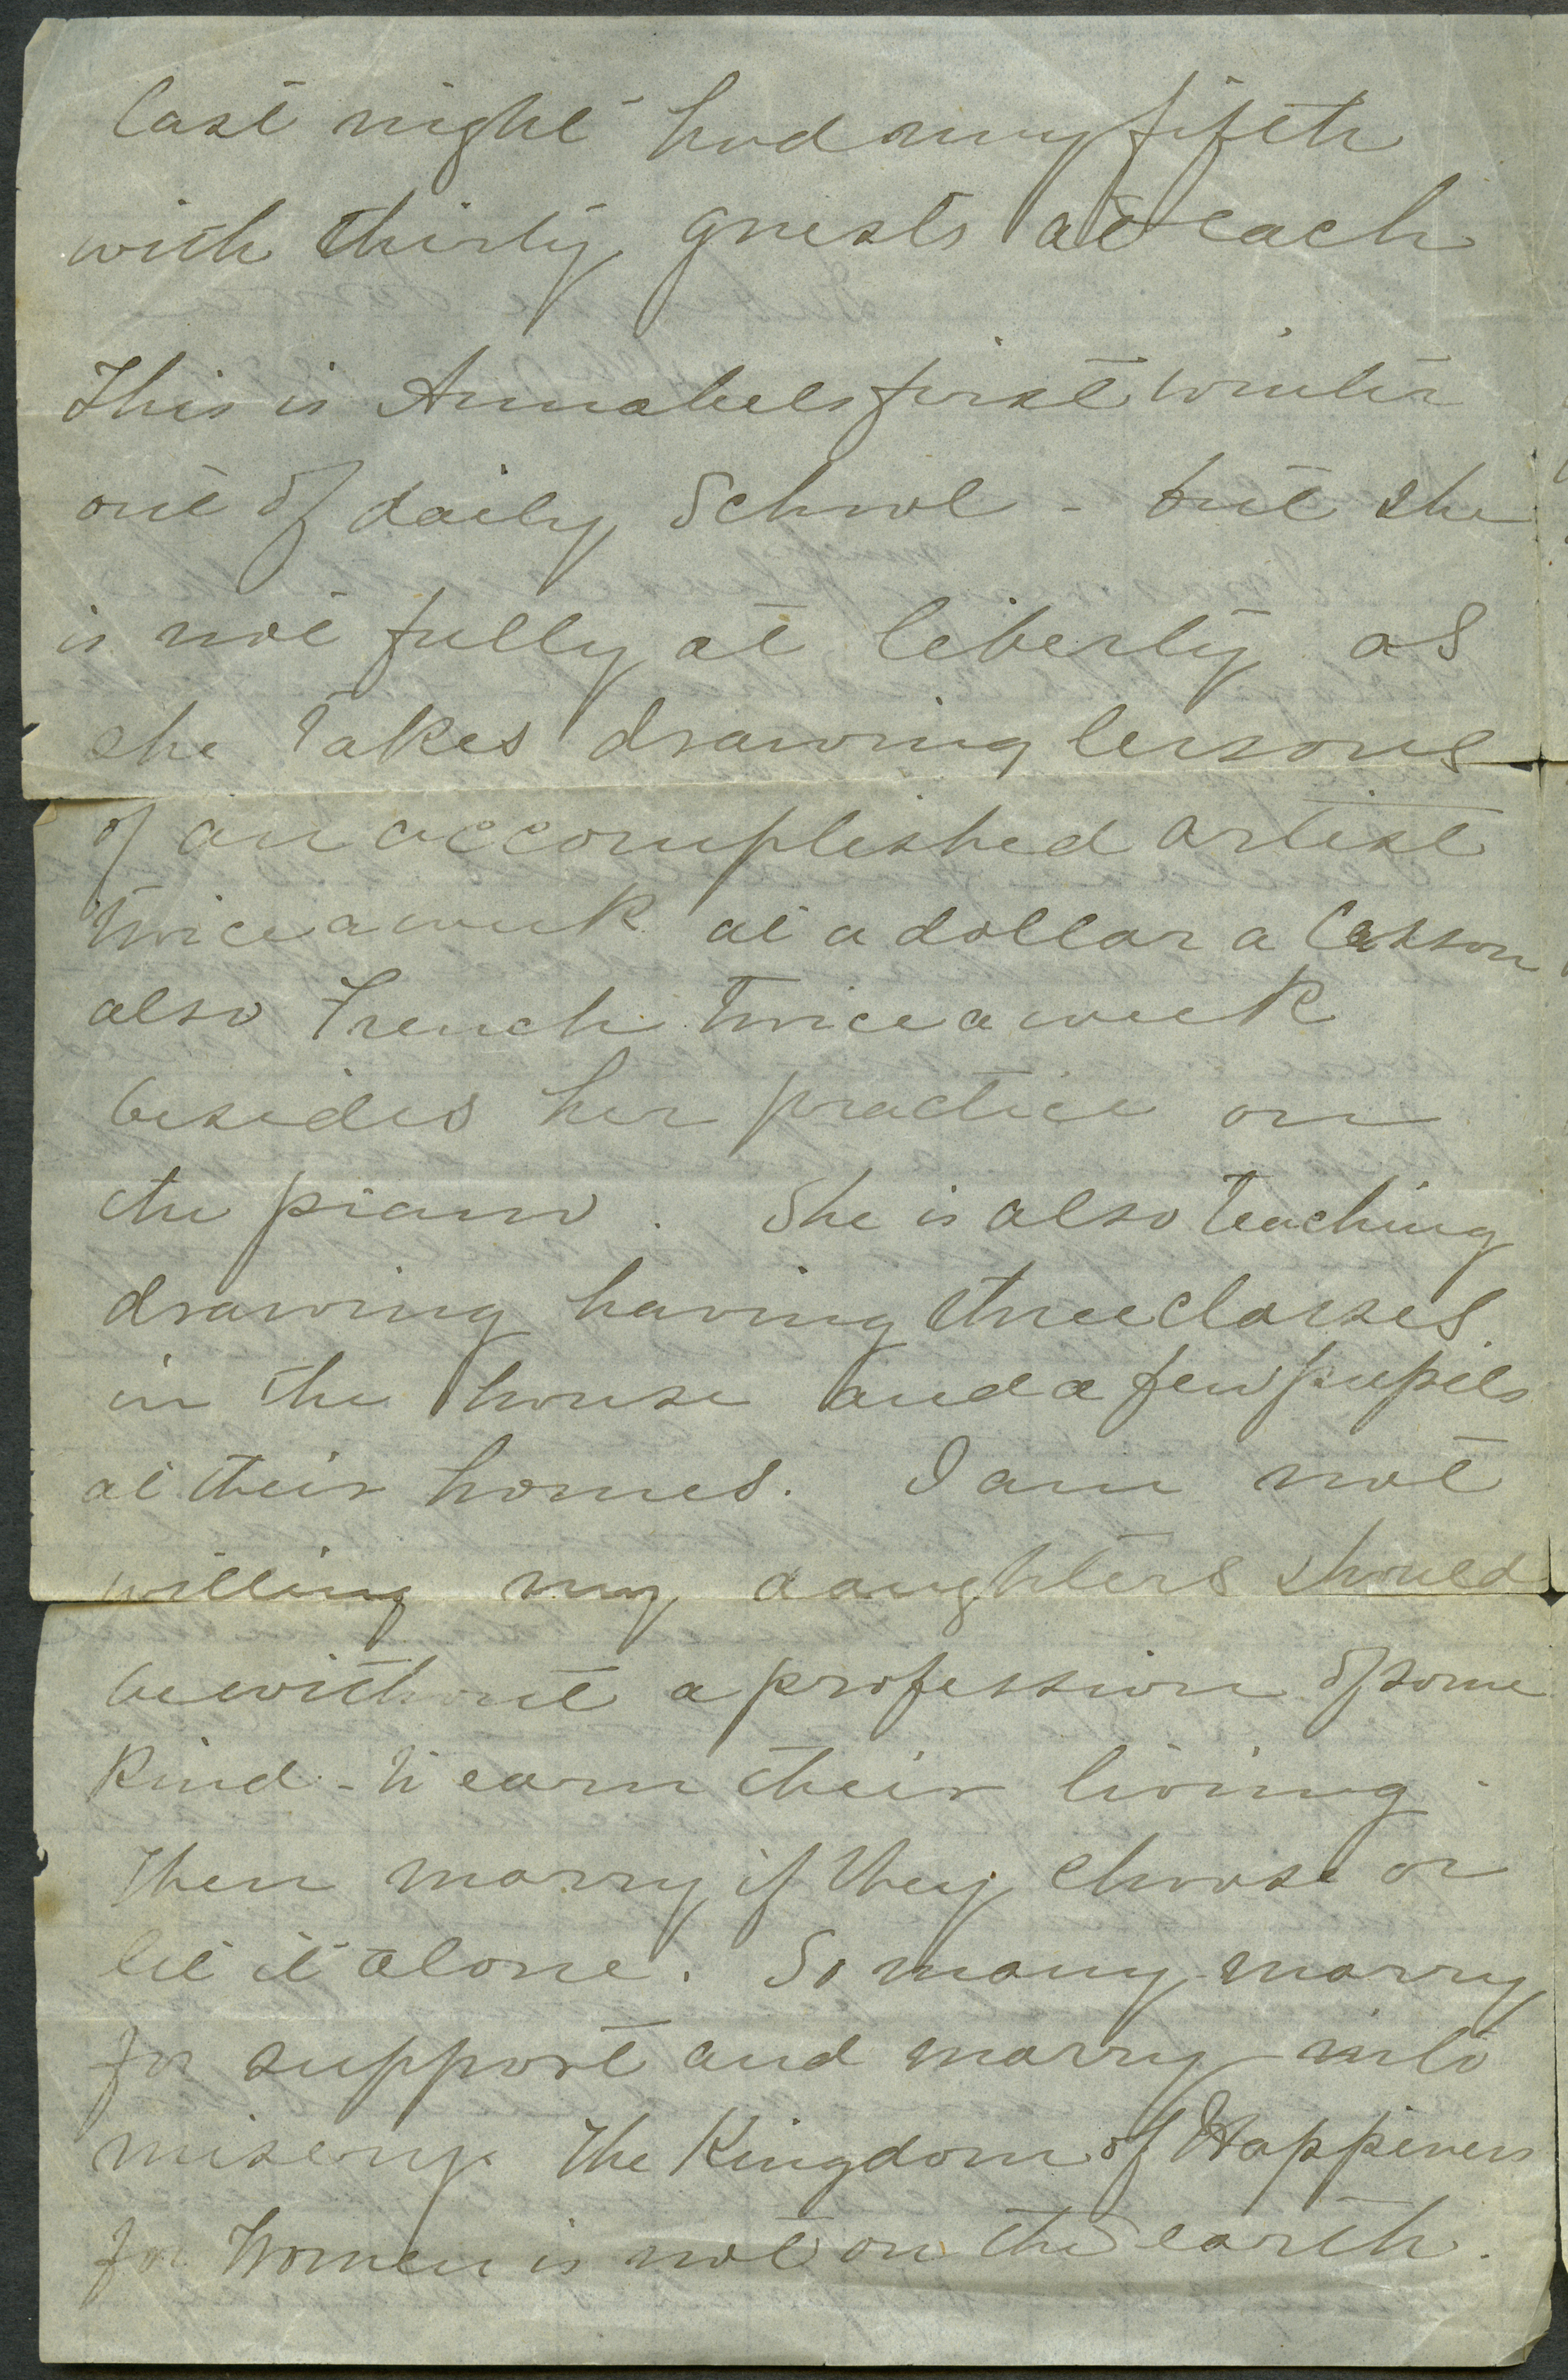 last night had my fifth
with thirty guests at each
This is Annabels first winter
out of daily School - but she
is not fully at liberty as
she takes drawing lessons
of an accomplished artist
twice a week at a dollar a lesson
also French twice a week
besides her practice on
the piano. She is also teaching
drawing having three classes
in the house and a few pupils
at their homes. I am not
willing my daughters should
be without a profession of some
kind - to earn their living.
Then marry if they choose or
let it alone. So many marry
for support and marry into
misery. The Kingdom of Happiness
for Women is not on the earth.